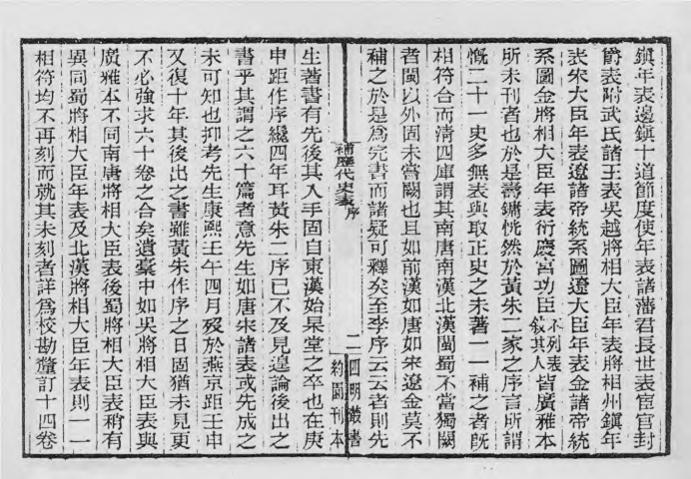 鎭年表邊鎭十道節度使年表諸藩君長世表宦官封
爵表附武氏諸王表吳越將相大臣年表將相州鎭年
表宋大臣年表遼諸帝統系圖遼大臣年表金諸帝統
系圖金將相大臣年表衍慶宮功臣不列表敘其人皆廣雅本
所未刊者也於是壽鏞恍然於黃朱二家之序言所謂
慨二十一史多無表與取正史之未著一一補之者旣
相符合而淸四庫謂其南唐南漢北漢閩蜀不當獨闕
者閩以外固未嘗闕也且如前漢如唐如宋遼金莫不
補之於是爲完書而諸疑可釋矣至李序云云者則先
補歷代史表 序
二
四明叢書
約園刊本
生著書有先後其入手固自東漢始杲堂之卒也在庚
申距作序纔四年耳黃朱二序已不及見遑論後出之
書乎其謂之六十篇者意先生如唐宋諸表或先成之
未可知也抑考先生康熙壬午四月歿於燕京距壬申
又復十年其後出之書雖黃朱作序之日固猶未見更
不必強求六十卷之合矣遺稾中如吳將相大臣年表與
廣雅本不同南唐將相大臣表後蜀將相大臣表稍有
異同蜀將相大臣年表及北漢將相大臣年表則一一
相符均不再刻而就其未刻者詳爲校勘釐訂十四卷